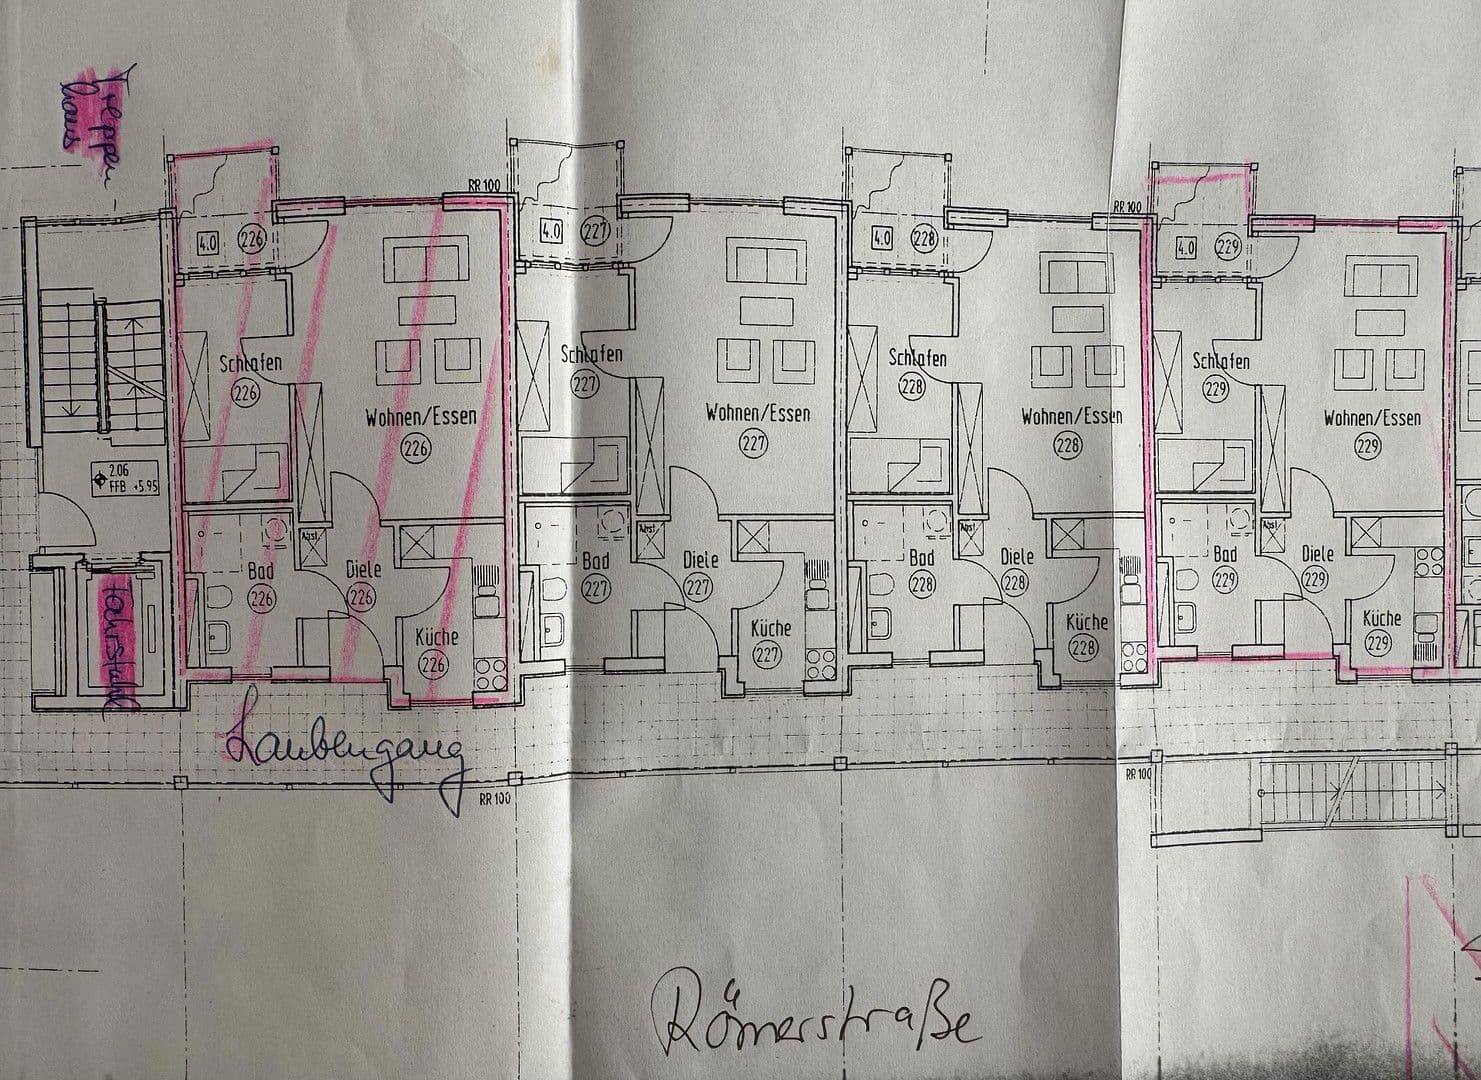 Treppen
haus
RR 100
RR 100
4.0 226
4.0 227
4.0 228
4.0 229
Schlafen
226
Schlafen
227
Schlafen
228
Schlafen
229
Wohnen/Essen
226
Wohnen/Essen
227
Wohnen/Essen
228
Wohnen/Essen
229
2.06
FFB +5.95
Abst.
Abst.
Abst.
Abst.
Bad
226
Diele
226
Bad
227
Diele
227
Bad
228
Diele
228
Bad
229
Diele
229
Fahrstuhl
Küche
226
Küche
227
Küche
228
Küche
229
Laubengang
RR 100
RR 100
Römerstraße